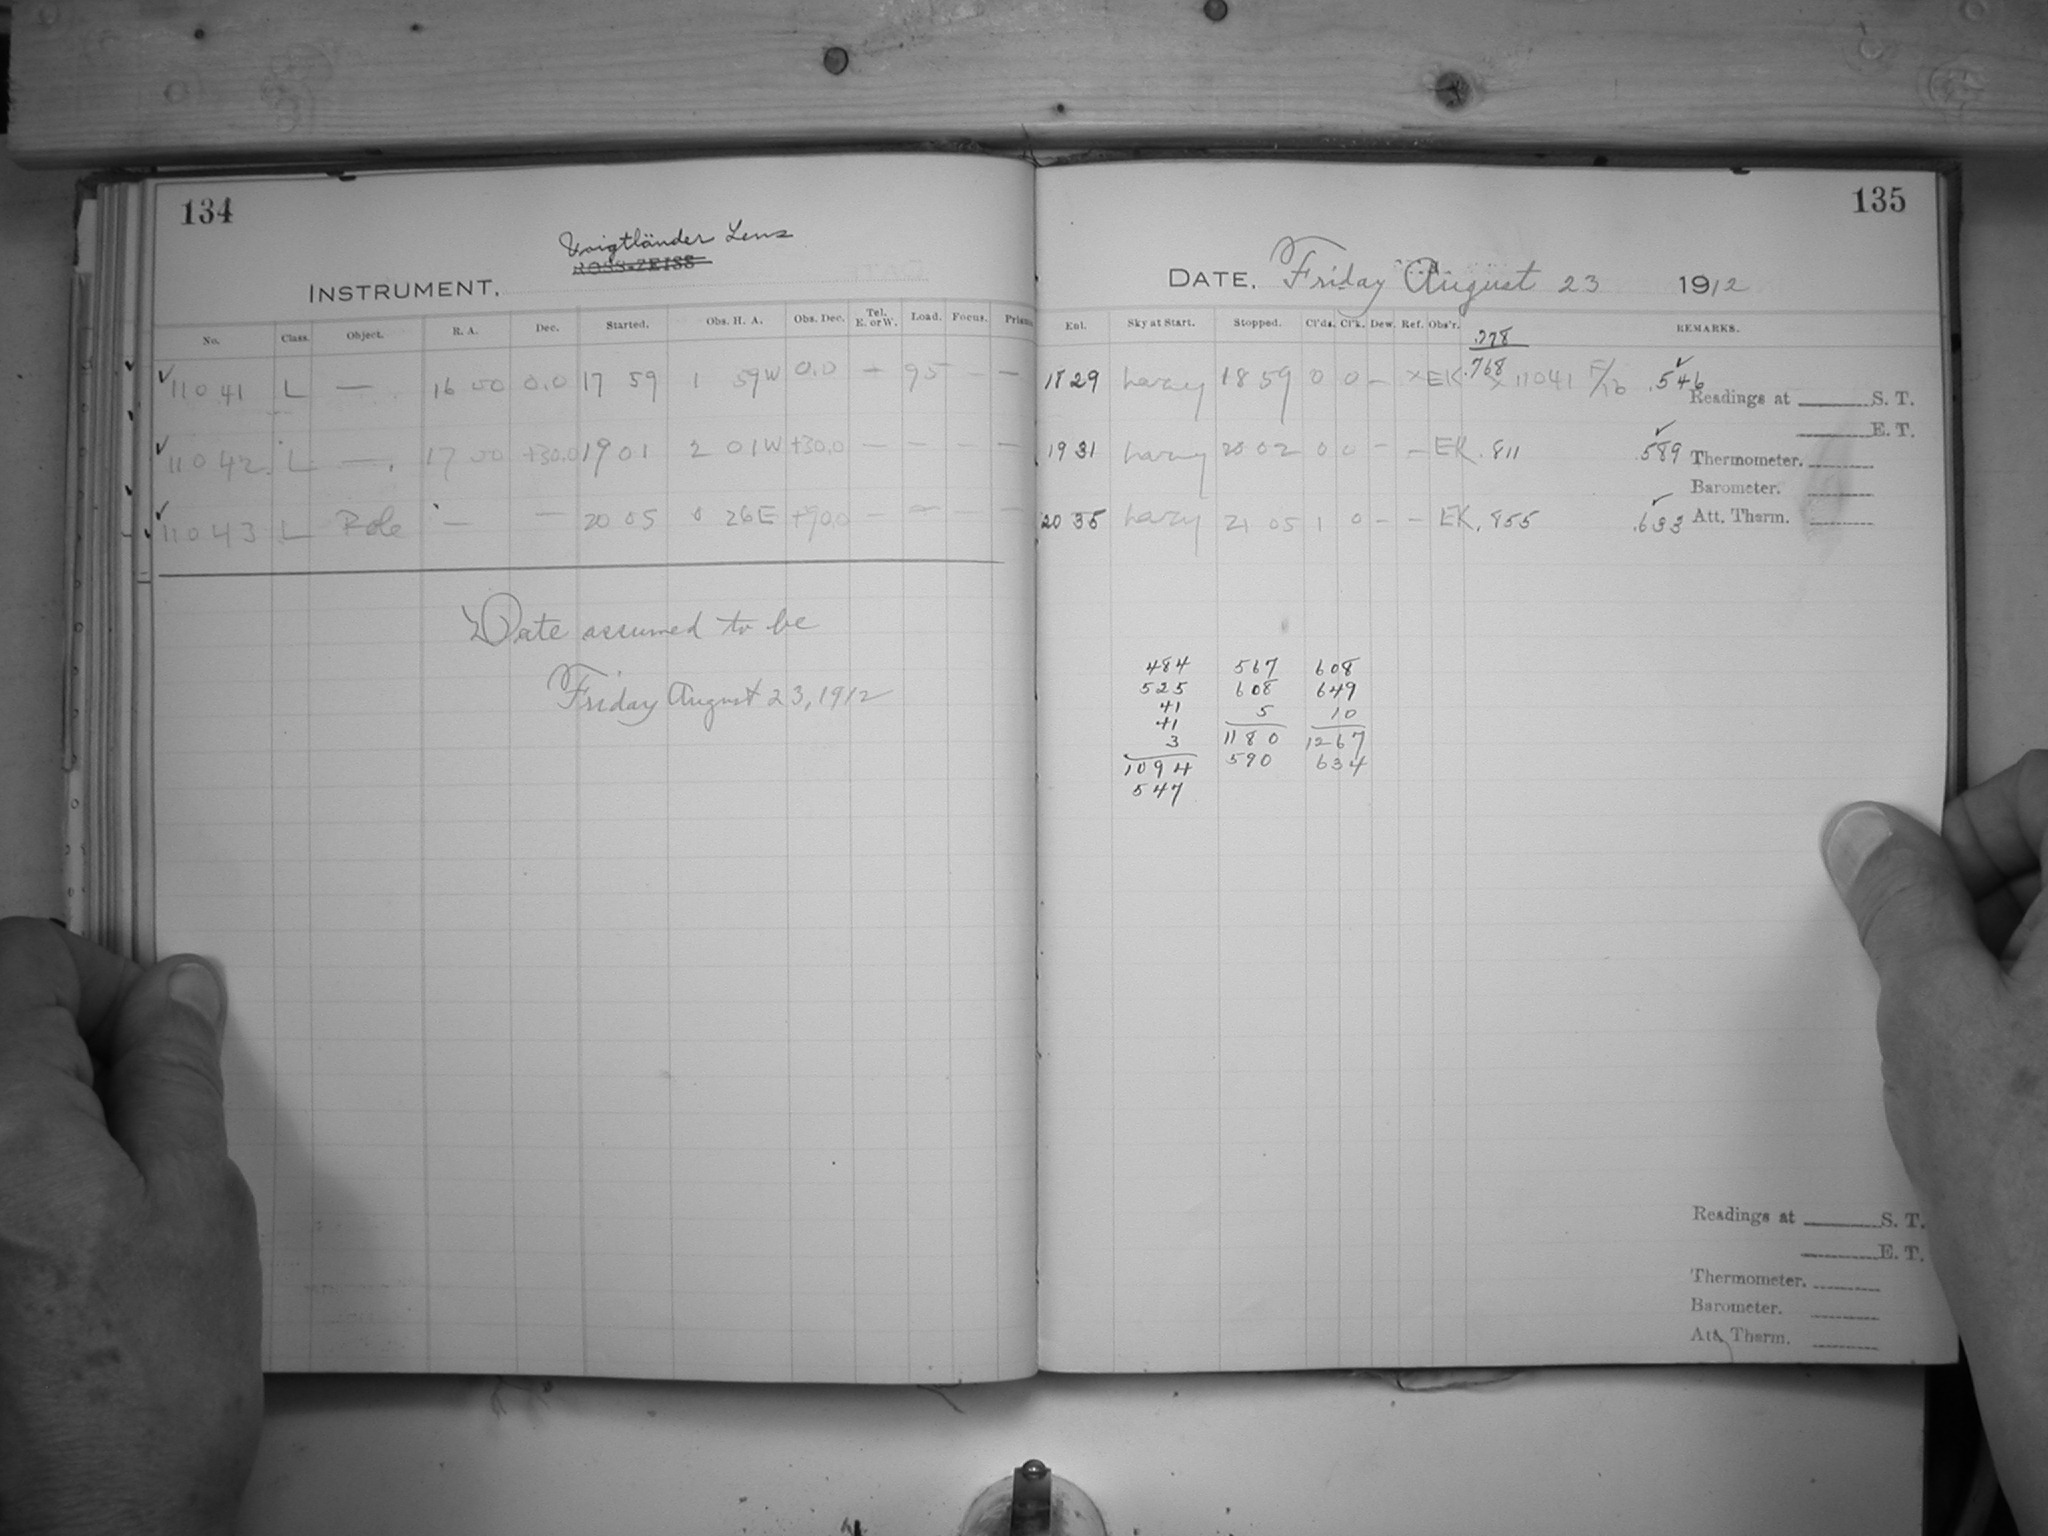 134
Voigtländer Lens
ROSS-ZEISS
INSTRUMENT.
No. Class. Object. R. A. Dec. Started. Obs. H. A. Obs. Dec. Tel. E. or W. Load. Focus. Prisms
✓ 11041 L — 16 00 0.0 17 59 1 59W 0.0 — 95 — —
✓ 11042 L — 17 00 +30.0 19 01 2 01W +30.0 — — — —
✓ 11043 L Pole — — 20 05 0 26E +90.0 — — —
Date assumed to be
Friday August 23, 1912
135
DATE. Friday August 23 1912
Ent. Sky at Start. Stopped. Cl'ds. Cl'k. Dew. Ref. Obs'r. REMARKS.
.278
18 29 hazy 18 59 0 0 — × EK .768 × 11041 .546
Readings at S. T.
E. T.
19 31 hazy 20 02 0 0 — — EK .811 .589
Thermometer.
Barometer.
20 35 hazy 21 05 1 0 — — EK .855 .633
Att. Therm.
484 567 608
525 608 649
41 5 10
41 1180 1267
3 590 634
1094
547
Readings at S. T.
E. T.
Thermometer.
Barometer.
Att. Therm.